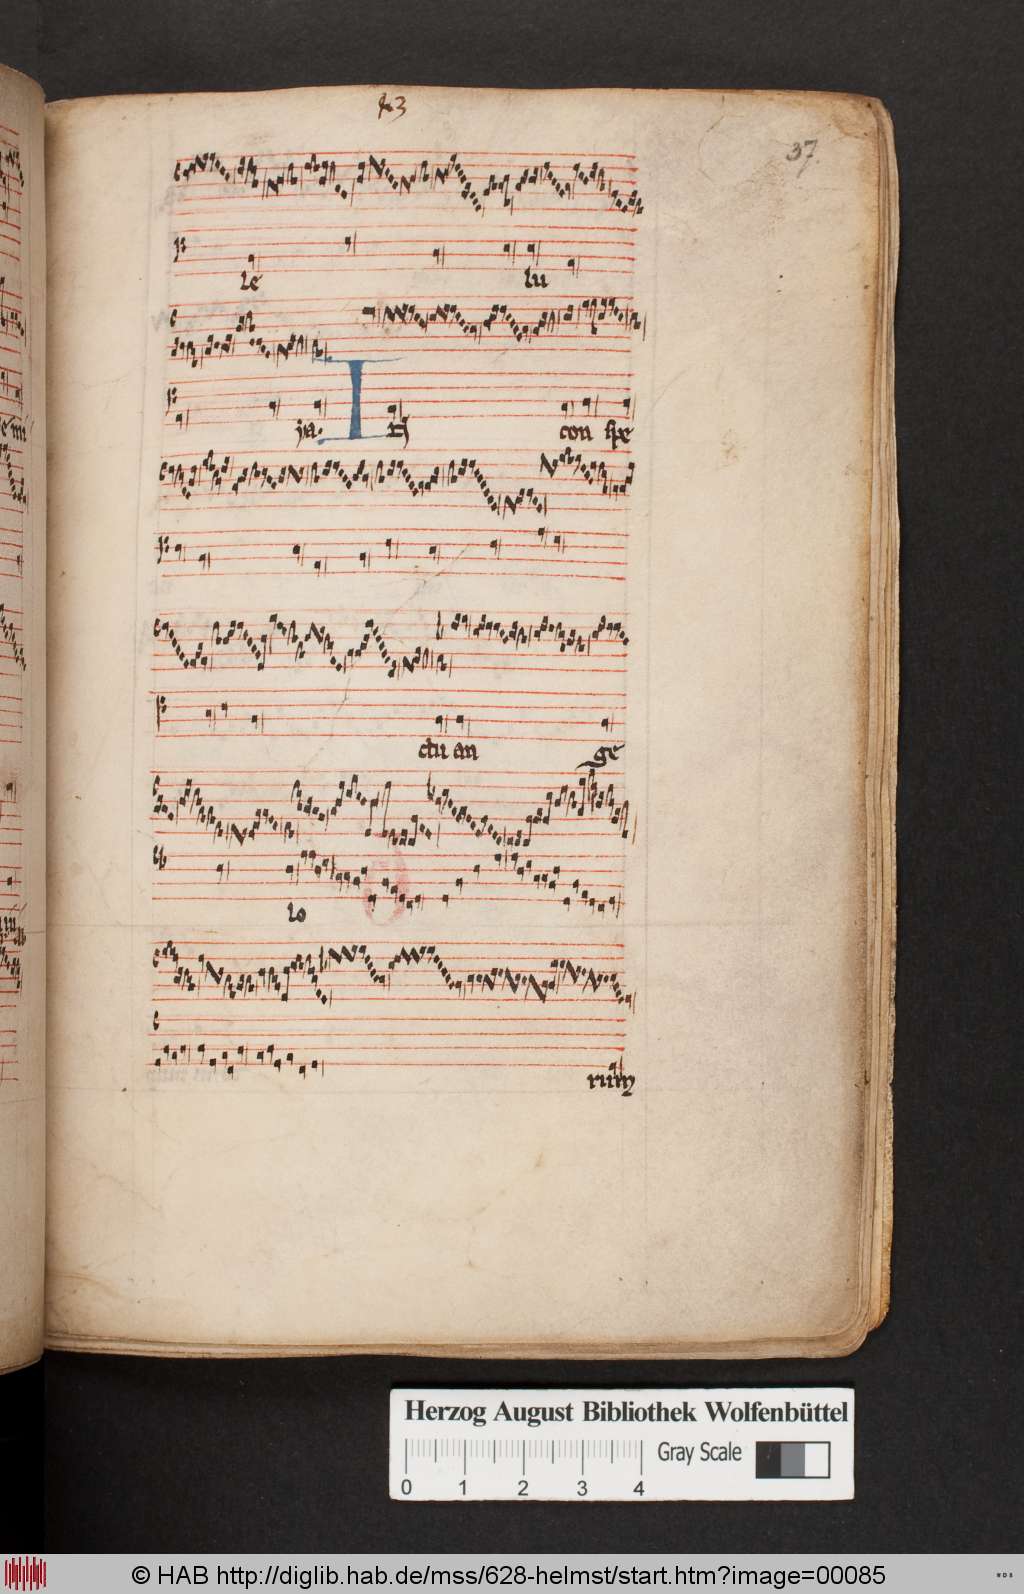 43
37
le lu
ya. In con spe
ctu an ge
lo
rum
Herzog August Bibliothek Wolfenbüttel
Gray Scale
0 1 2 3 4
© HAB http://diglib.hab.de/mss/628-helmst/start.htm?image=00085